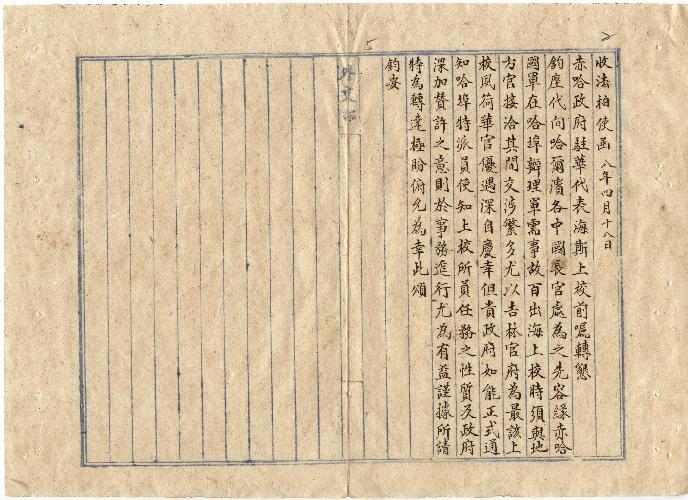 收法柏使函 八年四月十八日
赤哈政府駐華代表海斯上校前囑轉懇
鈞座代向哈爾濱各中國長官處為之先容緣赤哈
國軍在哈埠辦理軍需事故百出海上校時須與地
方官接洽其間交涉繁多尤以吉林官府為最該上
校夙荷華官優遇深自慶幸但貴政府如能正式通
知哈埠特派員使知上校所負任務之性質及政府
深加贊許之意則於事務進行尤為有益謹據所請
特為轉達極盼俯允為幸此頌
鈞安
外交部
5
2